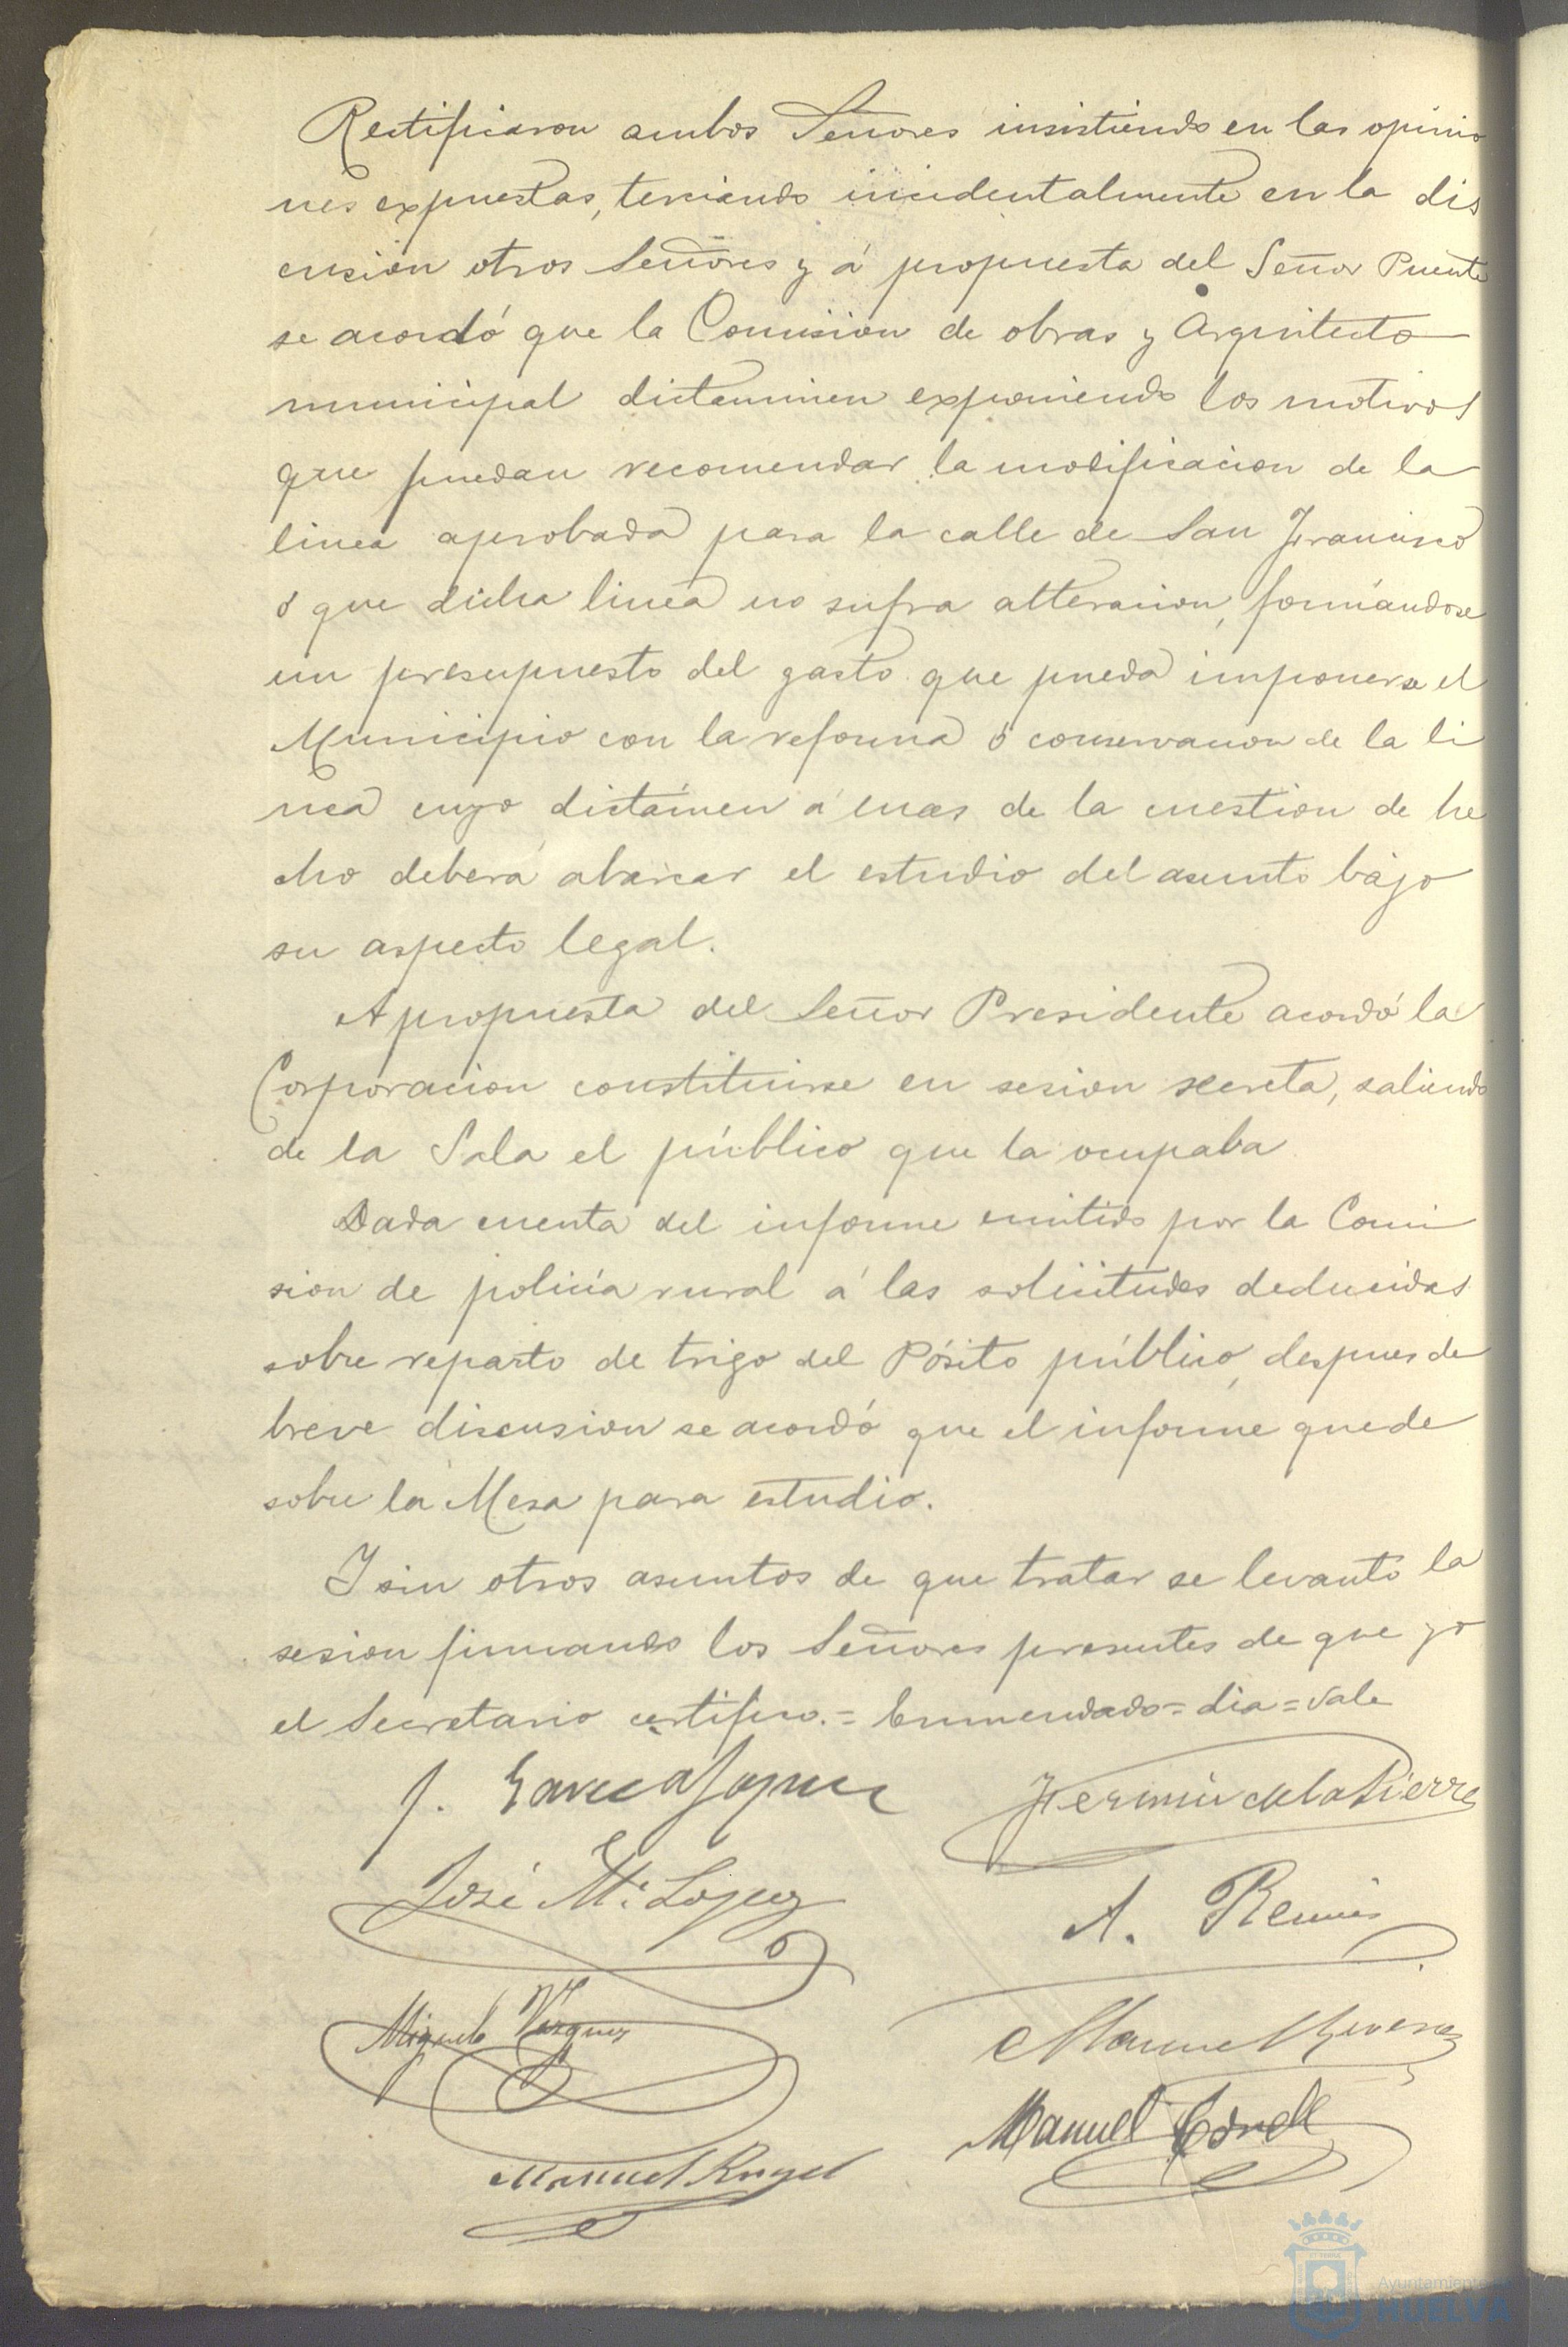 Rectificaron ambos Señores insistiendo en las opinio
nes expuestas, terciando incidentalmente en la dis
cusion otros Señores y á propuesta del Señor Puente
se acordó que la Comision de obras y Arquitecto
municipal dictaminen exponiendo los motivos
que puedan recomendar la modificacion de la
linea aprobada para la calle de San Francisco
ó que dicha linea no sufra alteracion, formándose
un presupuesto del gasto que pueda imponerse el
Municipio con la reforma ó conservacion de la li
nea cuyo dictámen á mas de la cuestion de he
cho deberá abarcar el estudio del asunto bajo
su aspecto legal.
A propuesta del Señor Presidente acordó la
Corporacion constituirse en sesion secreta, saliendo
de la Sala el público que la ocupaba
Dada cuenta del informe emitido por la Comi
sion de policía rural á las solicitudes deducidas
sobre reparto de trigo del Pósito público, despues de
breve discusion se acordó que el informe quede
sobre la Mesa para estudio.
Y sin otros asuntos de que tratar se levantó la
sesion firmando los Señores presentes de que yo
el Secretario certifico.= Enmendado= dia= Vale
J. Garcia Lopez
Fermin de la Sierra
José M.ª Lopez
A.
Miguel Vazquez
Manuel
Manuel
Manuel Rngel
Ayuntamiento
HUELVA